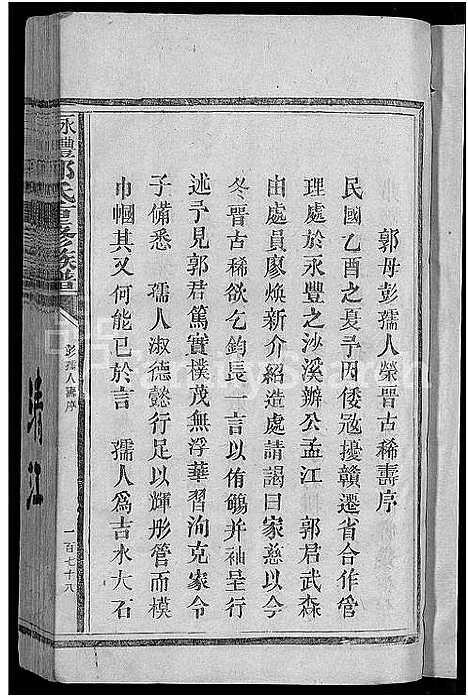 郭母彭孺人榮晉古稀壽序
民國乙酉之夏予因倭寇擾贛遷省合作管
理處於永豐之沙溪辦公孟江　郭君武森
由處員廖煥新介紹造處請謁曰家慈以今
冬晉古稀欲乞鈞長一言以侑觴并袖呈行
述予見郭君篤實樸茂無浮華習洵克家令
子備悉　孺人淑德懿行足以輝彤管而模
巾幗其又何能已於言　孺人為吉水大石
永豐郭氏重修族譜
彭孺人壽序
一百七十八
清江